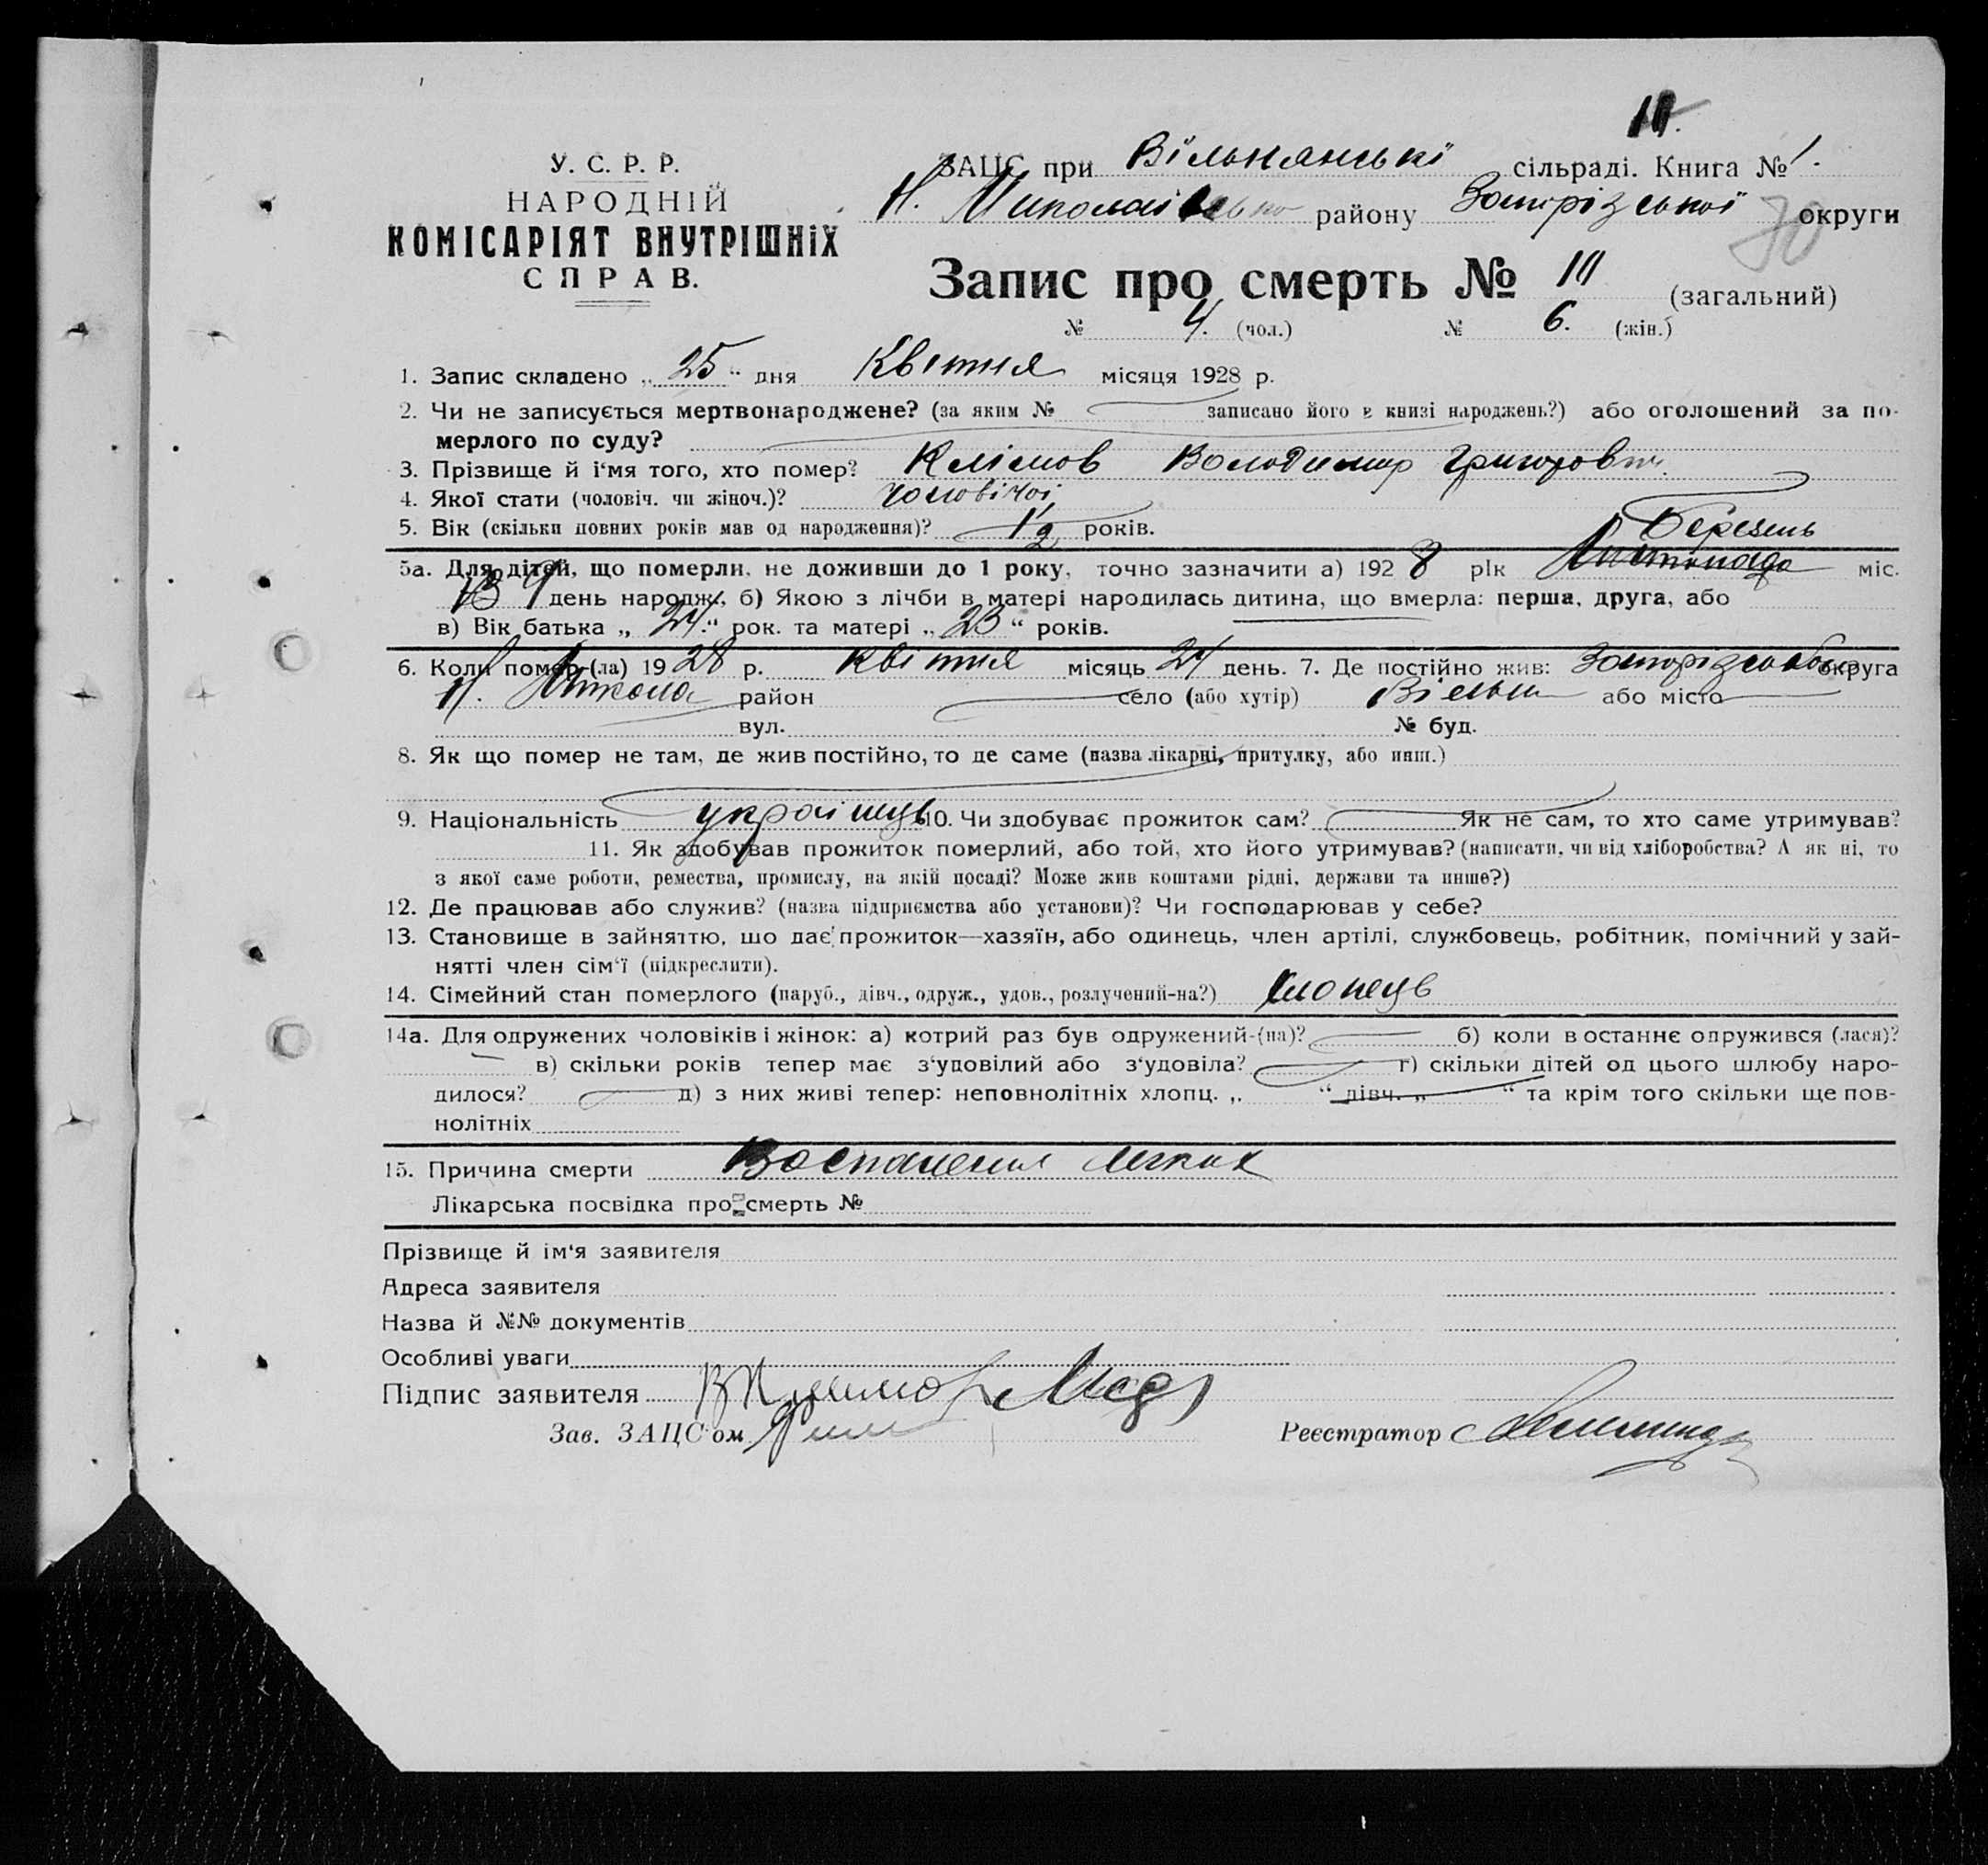 У. С. Р. Р.
НАРОДНІЙ
КОМІСАРІЯТ ВНУТРІШНІХ
СПРАВ.
ЗАЦС при Вільнянські сільраді. Книга № 1.
Н. Миколаівсько району Запорізської округи
70
Запис про смерть № (загальний)
№ 4. (чол.) № 6. (жін.)
1. Запис складено „ 25 “ дня Квітня місяця 1928 р.
2. Чи не записується мертвонароджене? (за яким № записано його в книзі народжень?) або оголошений за по-
мерлого по суду?
3. Прізвище й і‘мя того, хто помер? Клімов Володимир Григорович.
4. Якої стати (чоловіч. чи жіноч.)? чоловічоі
5. Вік (скільки повних років мав од народження)? 1/2 років.
Березень
5а. Для дітей, що померли, не доживши до 1 року, точно зазначити а) 1928 рік Листопада міс.
день народж., б) Якою з лічби в матері народилась дитина, що вмерла: перша, друга, або
в) Вік батька „ 24. “ рок. та матері „ 23 “ років.
6. Коли помер-(ла) 1928 р. квітня місяць 24 день. 7. Де постійно жив: округа
Н. Микола район село (або хутір) Вільн або місто
вул. № буд.
8. Як що помер не там, де жив постійно, то де саме (назва лікарні, притулку, або инш.)
9. Національність украінець 10. Чи здобуває прожиток сам? Як не сам, то хто саме утримував?
11. Як здобував прожиток померлий, або той, хто його утримував? (написати, чи від хліборобства? А як ні, то
з якої саме роботи, ремества, промислу, на якій посаді? Може жив коштами рідні, держави та инше?)
12. Де працював або служив? (назва підприємства або установи)? Чи господарював у себе?
13. Становище в зайняттю, що дає прожиток—хазяїн, або одинець, член артілі, службовець, робітник, помічний у зай-
нятті член сім‘ї (підкреслити).
14. Сімейний стан померлого (паруб., дівч., одруж., удов., розлучений-на?) хлопець
14а. Для одружених чоловіків і жінок: а) котрий раз був одружений-(на)? б) коли в останнє одружився (лася)?
в) скільки років тепер має з‘удовілий або з‘удовіла? г) скільки дітей од цього шлюбу наро-
дилося? д) з них живі тепер: неповнолітніх хлопц. „ “ дівч. „ “ та крім того скільки ще пов-
нолітніх
15. Причина смерти Воспаления легких
Лікарська посвідка про смерть №
Прізвище й ім‘я заявителя
Адреса заявителя
Назва й №№ документів
Особливі уваги
Підпис заявителя
Зав. ЗАЦС‘ом Реєстратор